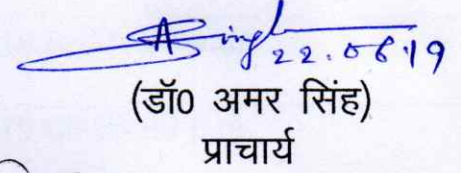 A Singh
22.06.19
(डॉ0 अमर सिंह)
प्राचार्य